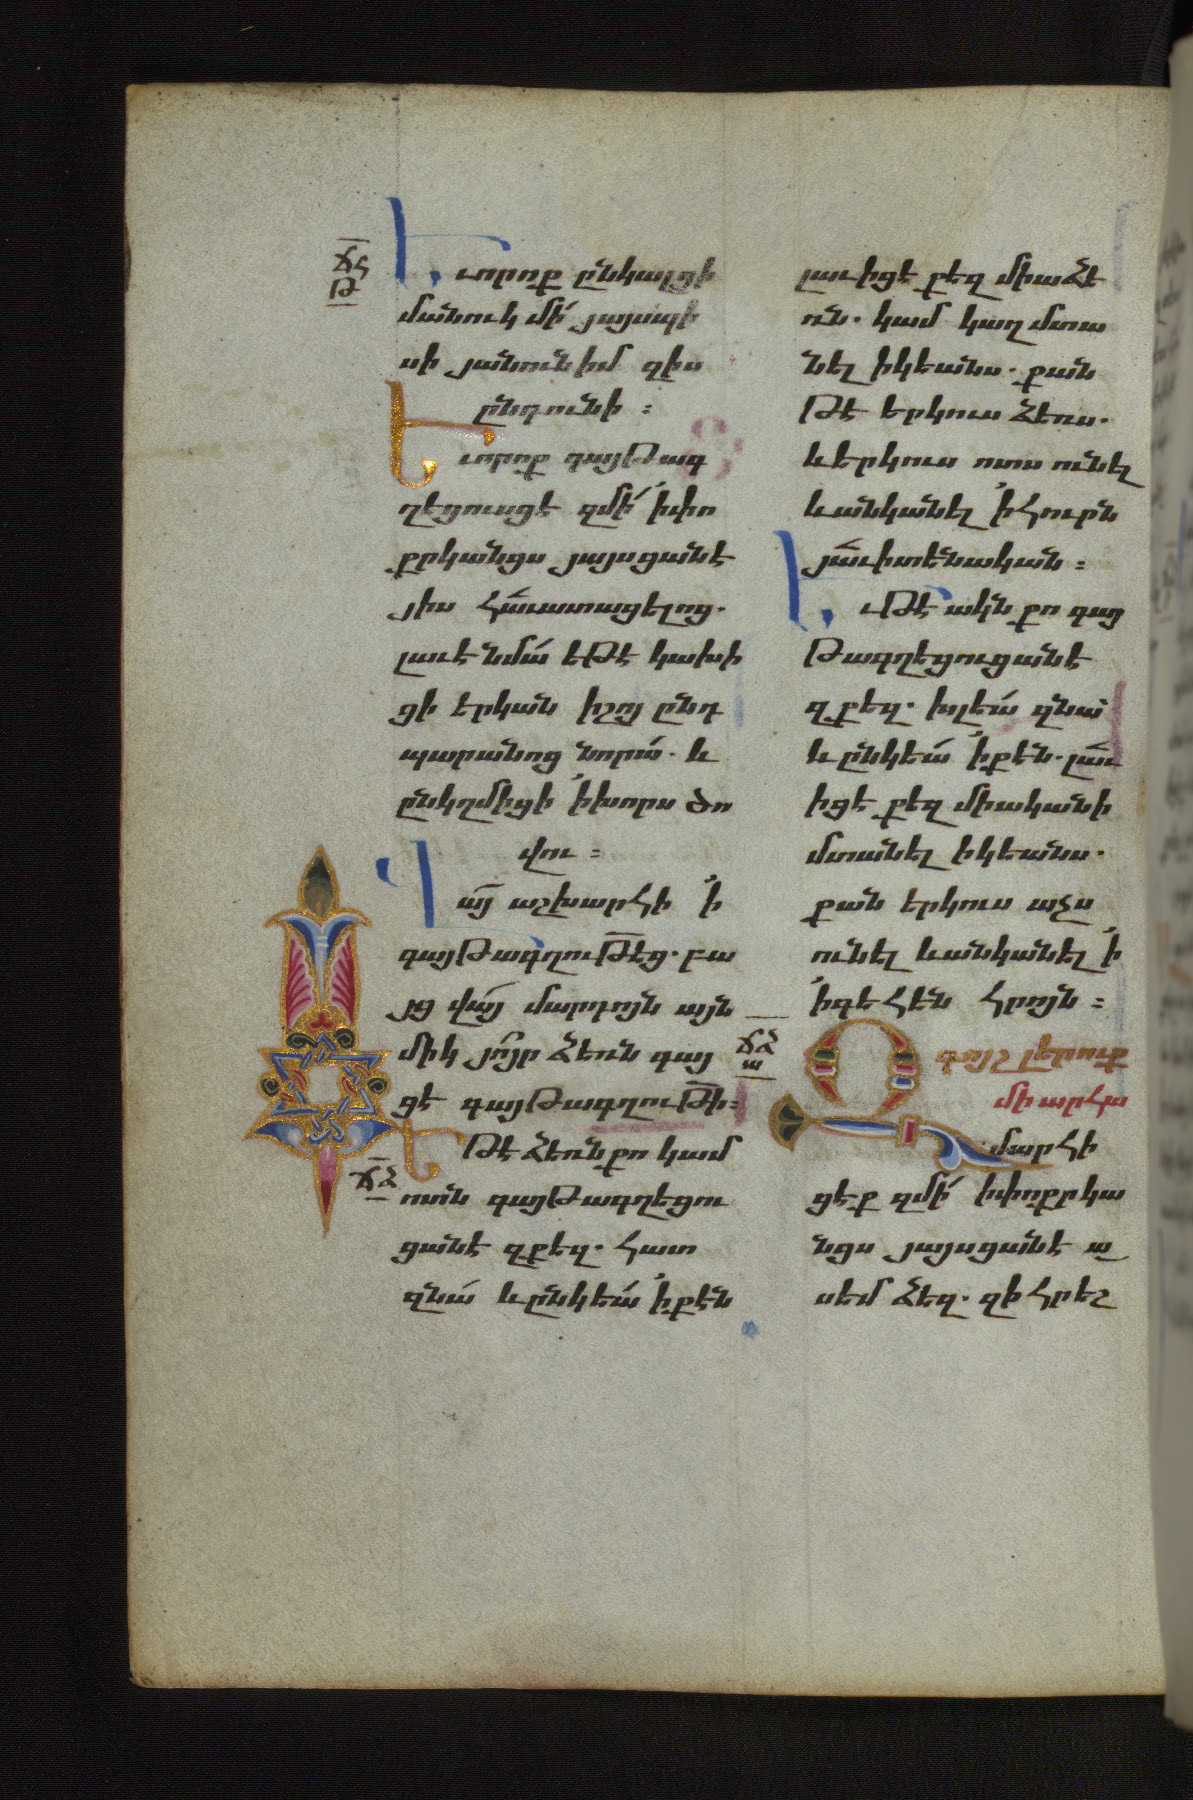 ՃՀ
Թ
Եւ որոք ընկալցի
մանուկ մի՛ յայսպի
սի յանուն իմ զիս
ընդունի :
Եւ որոք գայԹագ
ղեցուսցէ զմի՛ ի՛փո
քրկանցս յայսցանէ
յիս հա՞ւատացելոց.
լաւէ նմա՛ եԹէ կախի
ցի երկան իշոյ ընդ
պարանոց նորա՛. և
ընկղմիցի ի՛խորս ծո
վու :
Վա՛յ աշխարհի ի՛
գայԹագղուԹե՞ց. բա
յց վա՛յ մարդոյն այն
միկ յո՞յր ձեռն գայ
ցէ գայԹագղուԹի՞ :
ՃՁ
ԵԹէ ձեռն քո կամ
ոտն գայԹագղեցու
ցանէ զքեզ. հատ
զնա՛ և ընկեա՛ ի՛քէն
լաւիցէ քեզ միաձե
ռն. կամ կաղ մտա
նել ի կեանս. քան
Թէ երկուս ձեռս.
և երկուս ոտս ունել
և անկանել ի՛հուրն
յա՞ւիտենական :
Եւ Թէ ակն քո գայ
Թագղեցուցանէ
զքեզ. խլեա՛ զնա՛
և ընկեա՛ ի՛քէն. լա՞ւ
իցէ քեզ միականի
մտանել ի կեանս.
քան երկուս աչս
ունել և անկանել ի՛
ի՛գեհեն հրոյն :
ՃՁ
ա
Զգոյշ լերուք
մի արհա
մարհի
ցէք զմի՛ ի փոքրկա
նցս յայսցանէ ա
սեմ ձեզ. զի հրեշ